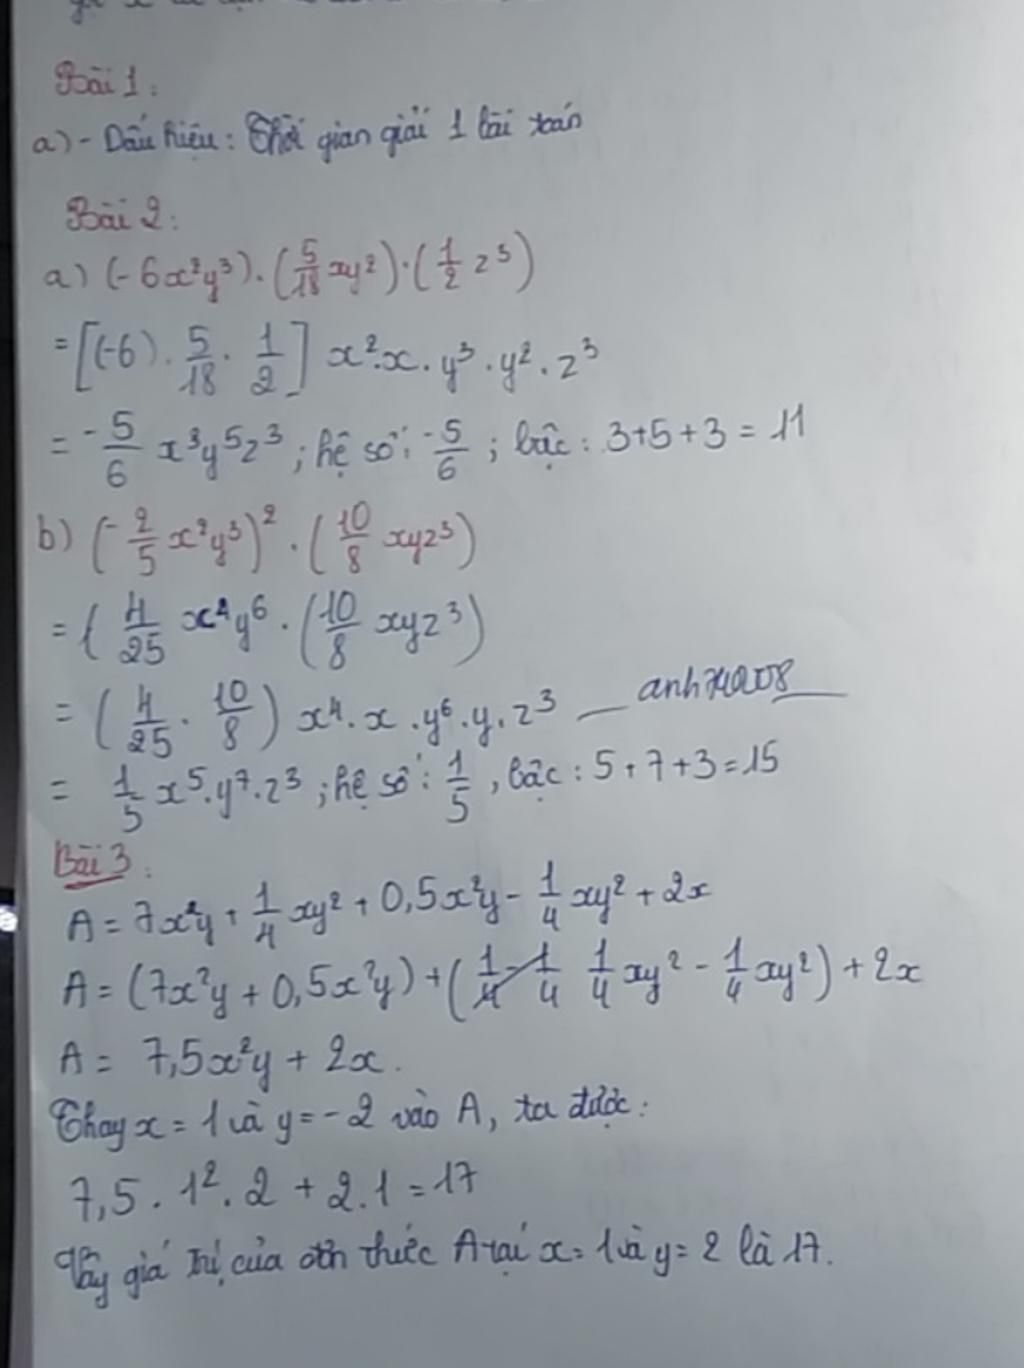 Bài 1:
a) - Dấu hiệu: Thời gian giải 1 bài toán
Bài 2:
a) (-6x²y³).(5/18 xy²).(1/2 z³)
= [(-6) . 5/18 . 1/2] x².x.y³.y².z³
= -5/6 x³y⁵z³ ; hệ số: -5/6 ; bậc: 3+5+3 = 11
b) (-2/5 x²y³)² . (10/8 xyz³)
= ( 4/25 x⁴y⁶ . (10/8 xyz³)
= (4/25 . 10/8) x⁴.x.y⁶.y.z³
= 1/5 x⁵.y⁷.z³ ; hệ số: 1/5 , bậc: 5+7+3=15
Bài 3:
A = 7x²y + 1/4 xy² + 0,5x²y - 1/4 xy² + 2x
A = (7x²y + 0,5x²y) + (1/4 - 1/4 1/4 xy² - 1/4 xy²) + 2x
A = 7,5x²y + 2x.
Thay x = 1 và y = -2 vào A, ta được:
7,5 . 1² . 2 + 2.1 = 17
Vậy giá trị của đơn thức A tại x = 1 và y = 2 là 17.